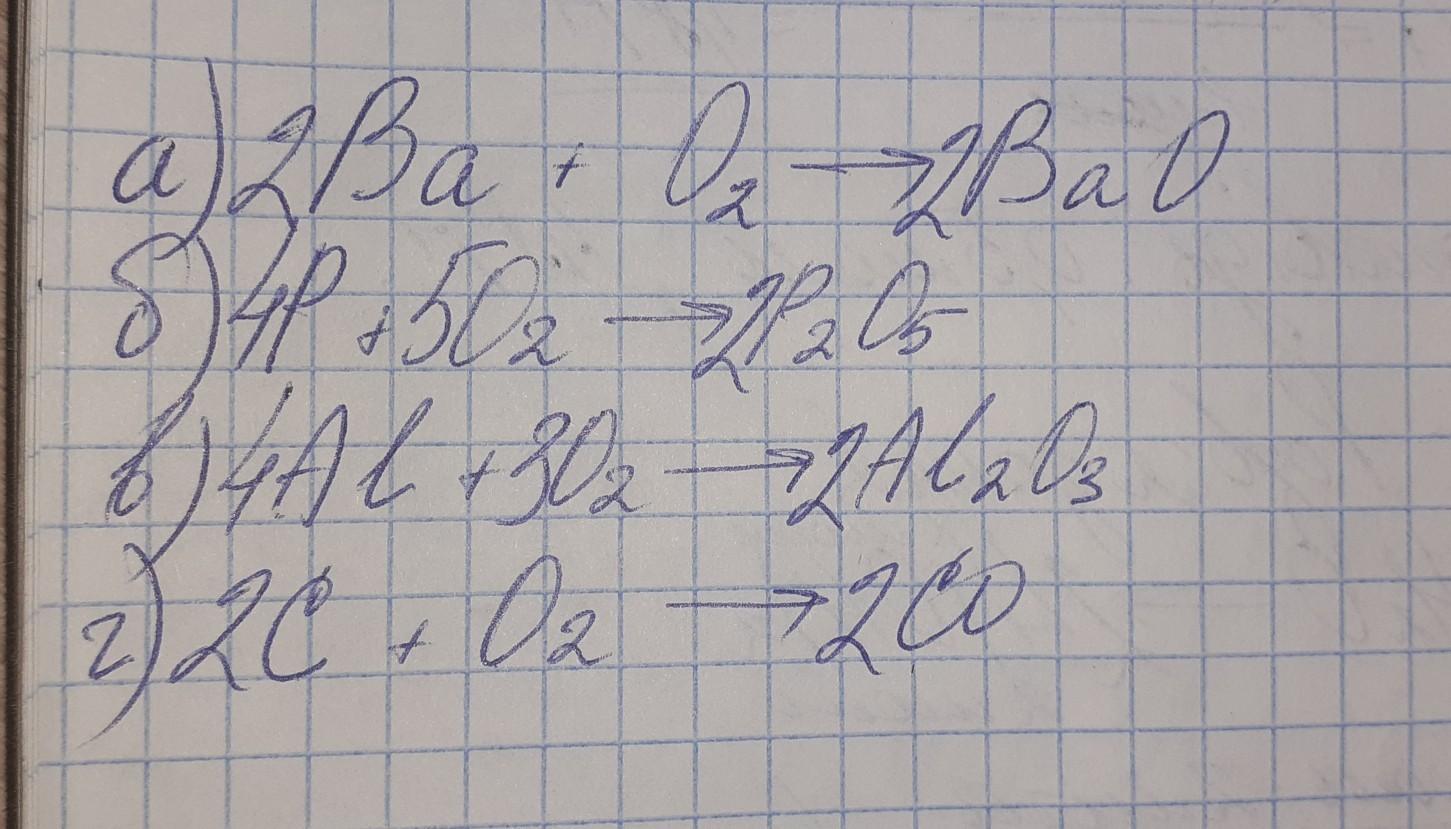 а) 2Ba + O₂ → 2BaO
б) 4P + 5O₂ → 2P₂O₅
в) 4Al + 3O₂ → 2Al₂O₃
г) 2C + O₂ → 2CO